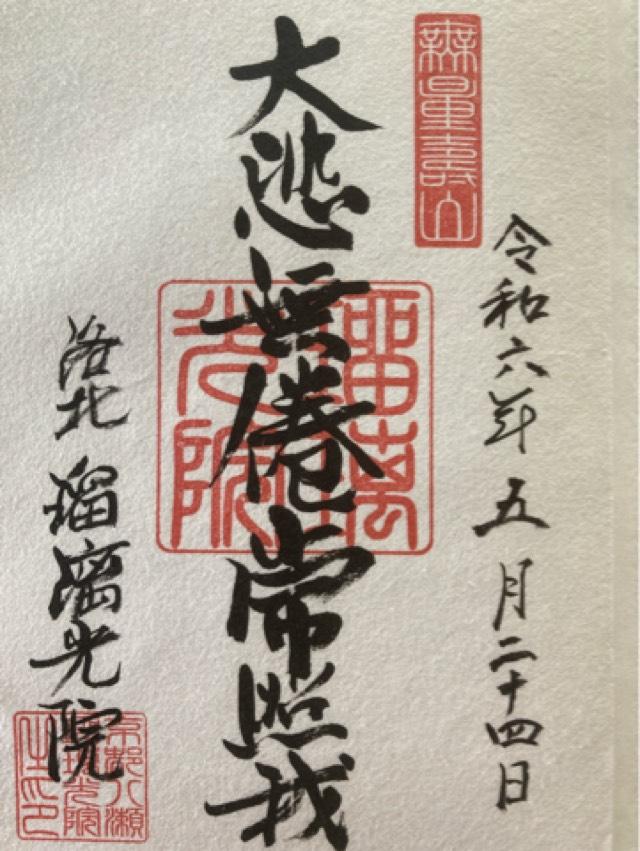 無量壽山
令和六年 五月二十四日
大悲無倦常照我
瑠璃光院
洛北 瑠璃光院
京都八瀬
瑠璃光院